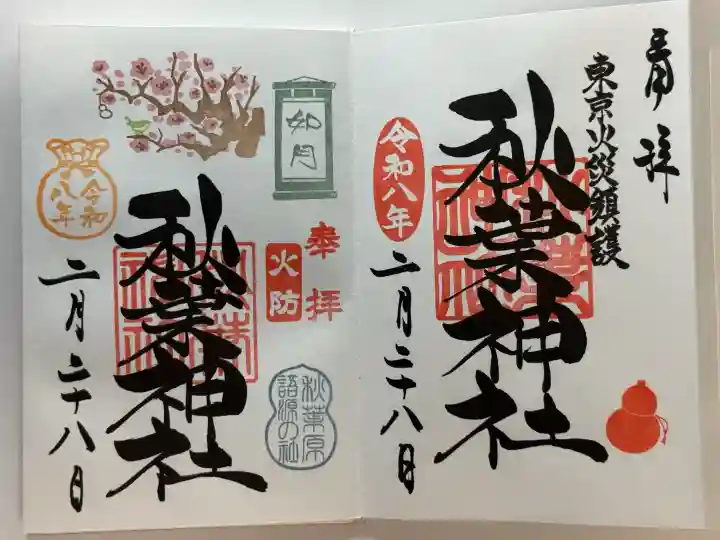 奉拝
東京火災鎮護
秋葉神社
令和八年
二月二十八日
如月
奉拝
火防
秋葉神社
秋葉原
語源の社
令和
八年
二月二十八日